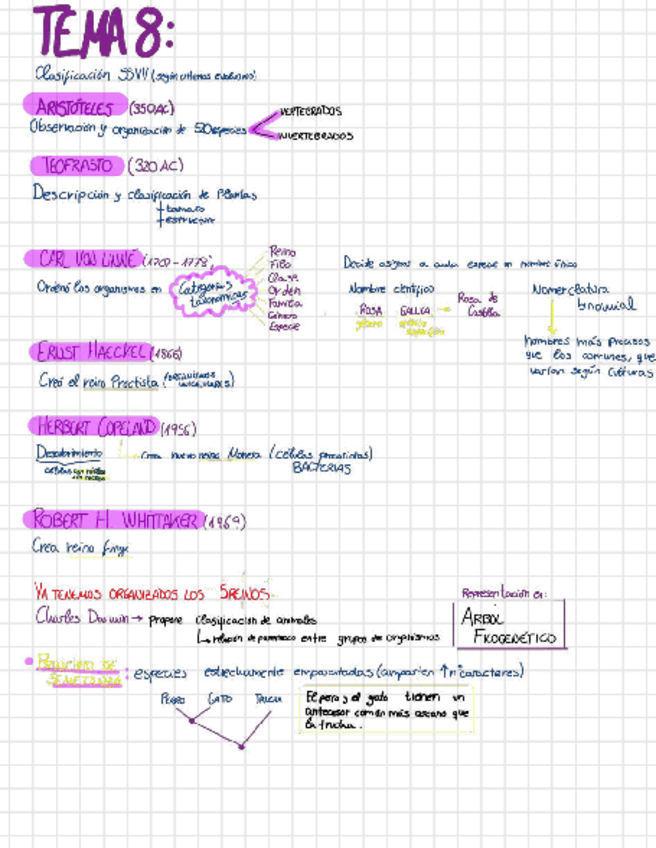 TEMA 8:
Clasificación SSVV (según criterios evolutivos)
ARISTÓTELES (350AC)
Observación y organización de 520 especies
VERTEBRADOS
INVERTEBRADOS
TEOFRASTO (320 AC)
Descripción y clasificación de Plantas
+ tamaño
+ estructura
CARL VON LINNÉ (1707-1778)
Ordenó los organismos en
Categorías
taxonómicas
Reino
Filo
Clase
Orden
Familia
Género
Especie
Decide asignar a cada especie un nombre único
Nombre científico
ROSA GALLICA → Rosa de Castilla
género
Nomenclatura
binomial
nombres más precisos
que los comunes, que
varían según culturas
ERNST HAECKEL (1866)
Creó el reino Proctista (ORGANISMOS UNICELULARES)
HERBERT COPELAND (1956)
Descubrimiento
Crea nuevo reino Monera (células procariotas)
BACTERIAS
células con núcleo
sin núcleo
ROBERT H. WHITTAKER (1969)
Crea reino fungi
YA TENEMOS ORGANIZADOS LOS 5 REINOS
Charles Darwin → propone clasificación de animales
↳ relación de parentesco entre grupos de organismos
Representación en:
ARBOL
FILOGENÉTICO
PRINCIPIO DE
SEMEJANZA: especies estrechamente emparentadas (comparten ↑nº caracteres)
PERRO GATO TRUCHA
El perro y el gato tienen un
antecesor común más cercano que
la trucha.